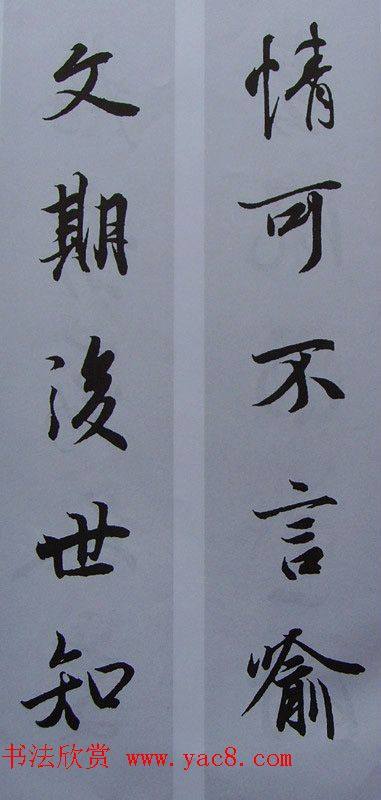 情可不言喻
文期後世知
书法欣赏 www.yac8.com